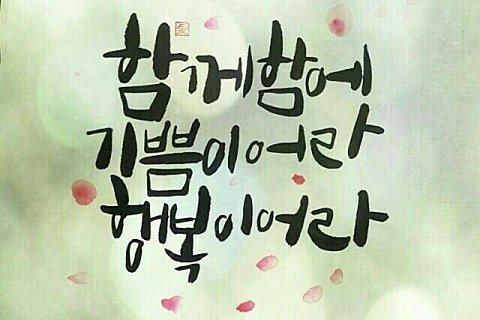 함께함에
기쁨이어라
행복이어라